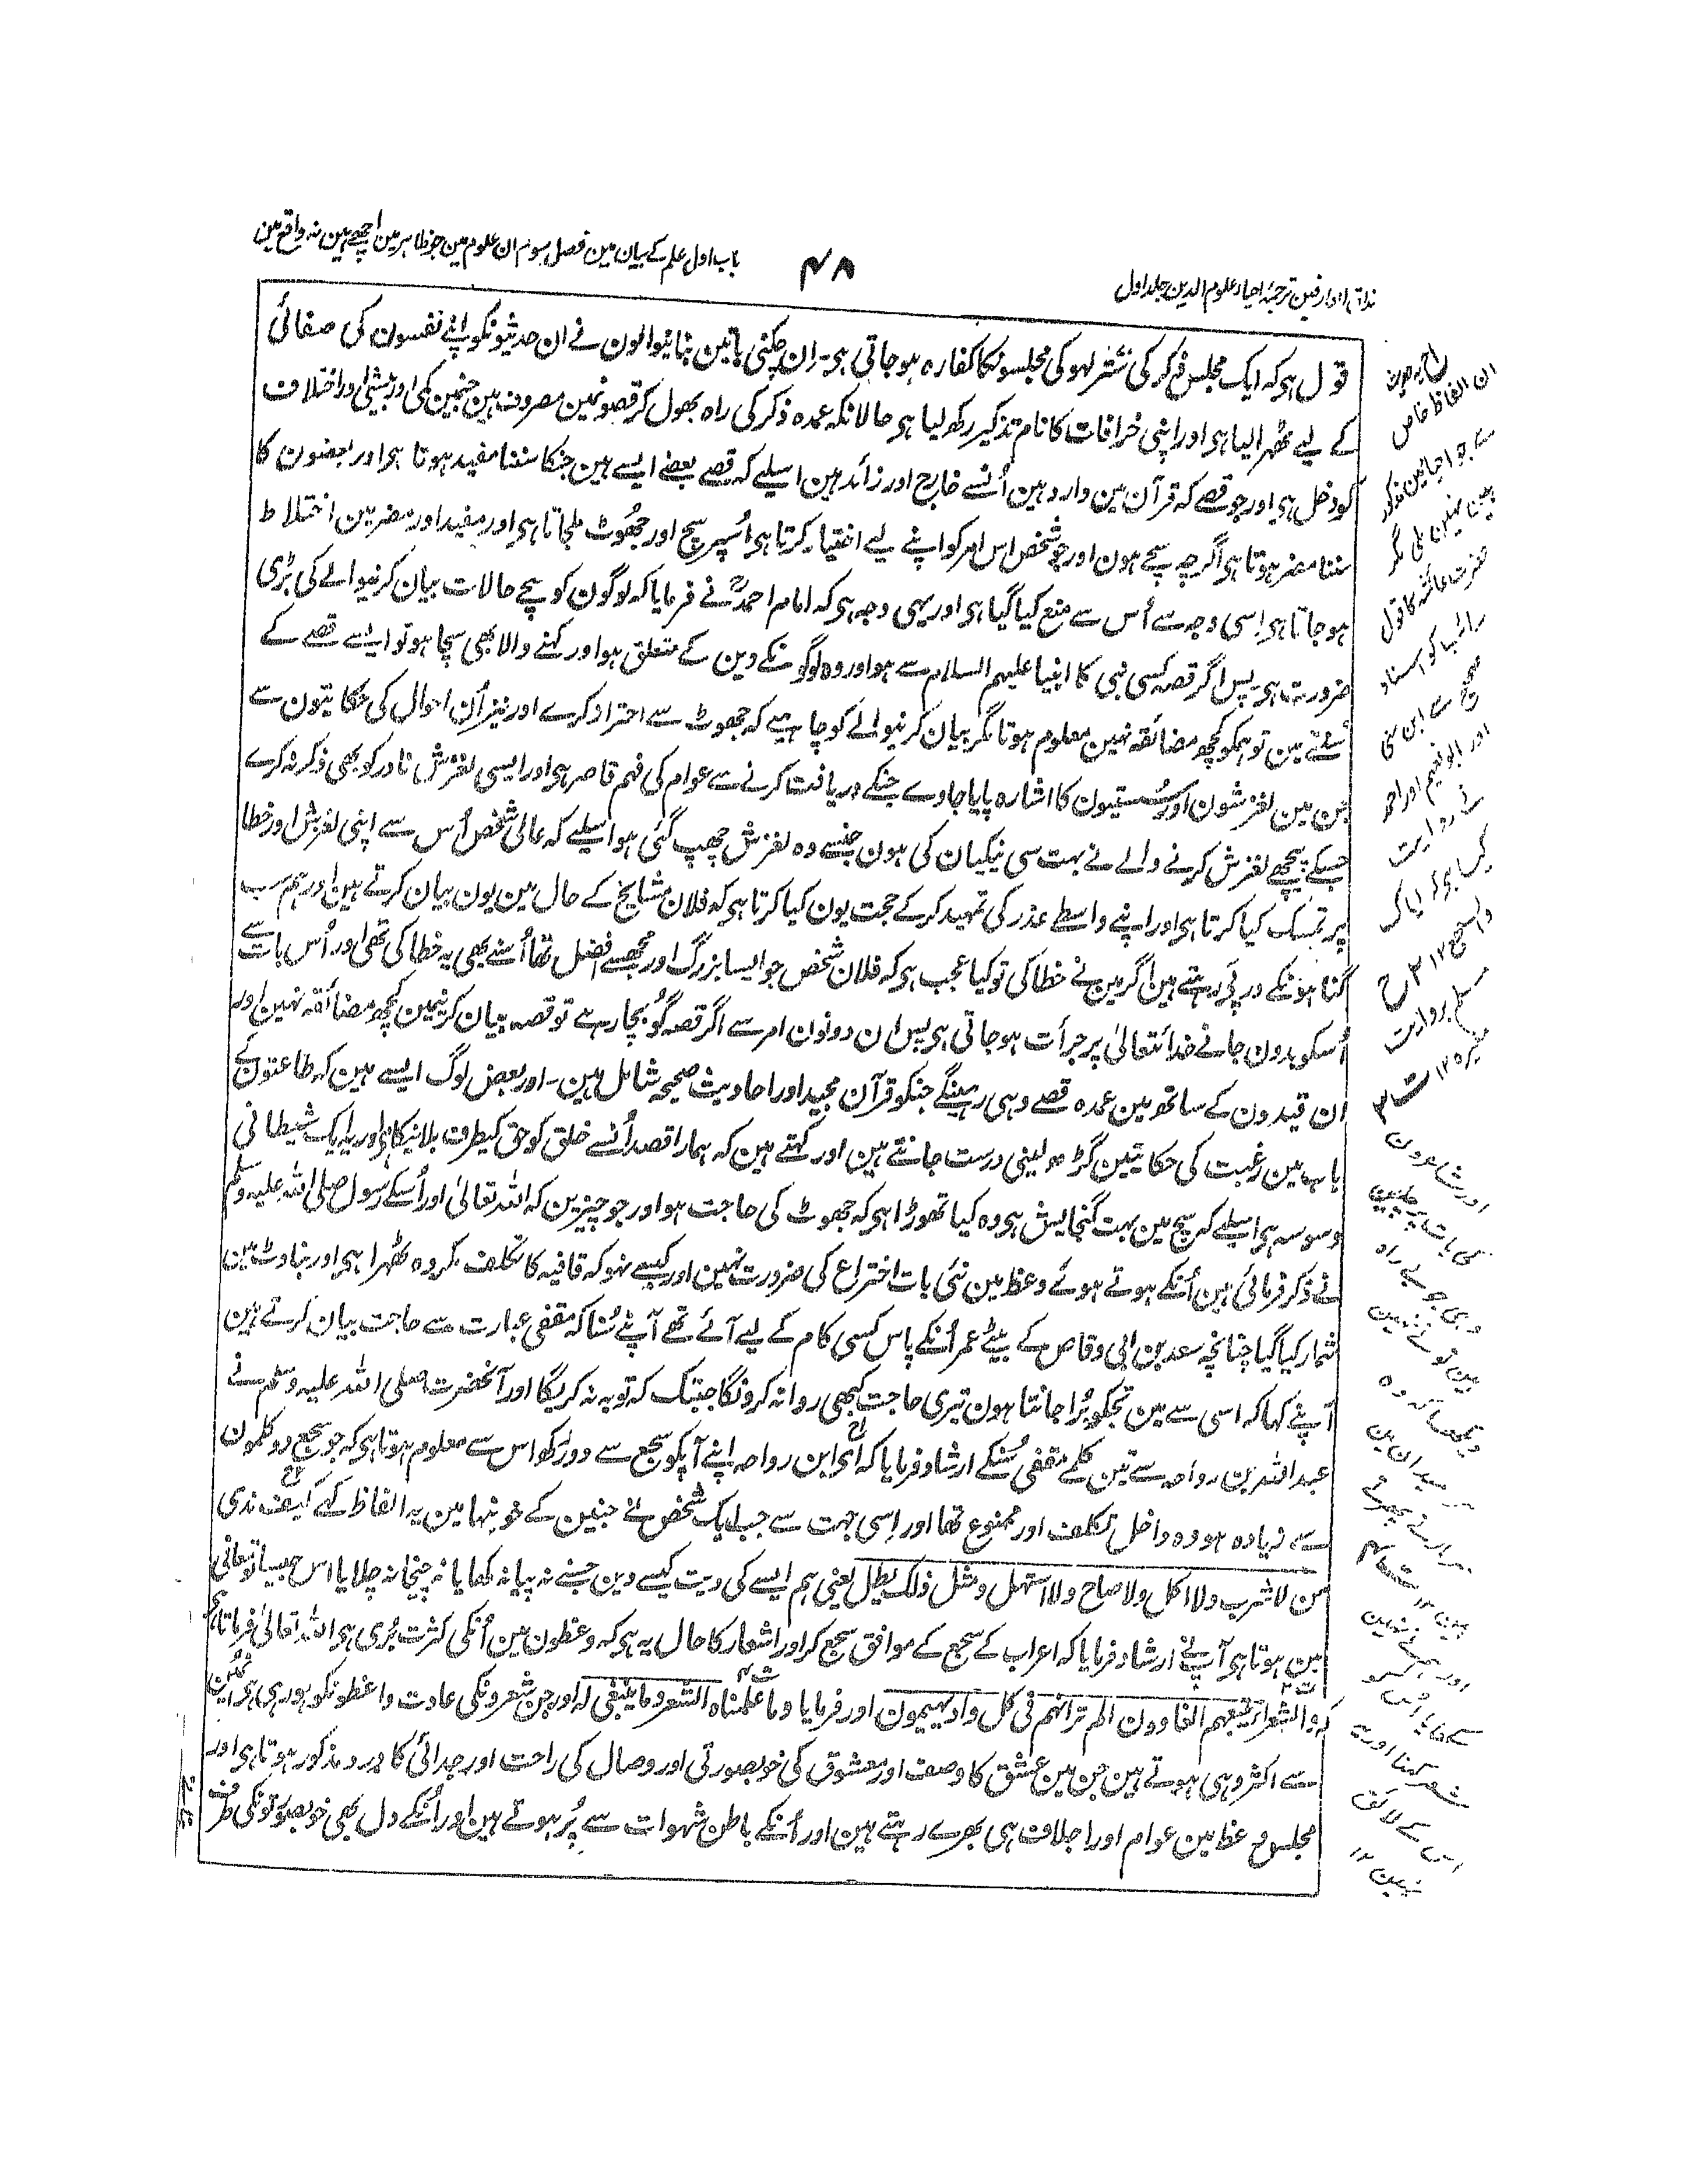 باب اول علم کے بیان مین فصل سوم ان علوم مین جو ظاہر مین اچھے ہین نہ واقع مین
۴۸
مذاق العارفین ترجمۂ احیاء علوم الدین جلد اول
قول ہی کہ ایک مجلس ذکر کی ستر لہو کی مجلسونکا کفارہ ہو جاتی ہی۔ ان چکنی باتین بنانیوالون نے ان حدیثونکو اپنے نفسون کی صفائی
کے لیے ٹھہرا لیا ہی اور اپنی خرافات کا نام تذکیر رکھ لیا ہی حالانکہ عمدہ ذکر کی راہ بھول کر قصونمین مصروف ہین جنمین کمی اور بیشی اور اختلاف
کو دخل ہی اور جو قصے کہ قرآن مین وارد ہین اُنسے خارج اور زائد ہین اسلیے کہ قصے بعضے ایسے ہین جنکا سننا مفید ہوتا ہی اور بعضون کا
سننا مضر ہوتا ہی اگرچہ سچے ہون اور جو شخص اس امر کو اپنے لیے اختیار کرتا ہی اُسپر سچ اور جھوٹ ملجاتا ہی اور مفید اور مضر مین اختلاط
ہو جاتا ہی اِسی وجہ سے اُس سے منع کیا گیا ہی اور یہی وجہ ہی کہ امام احمدؒ نے فرمایا کہ لوگون کو سچے حالات بیان کرنیوالے کی بڑی
ضرورت ہی۔ پس اگر قصہ کسی نبی کا انبیا علیہم السلام سے ہو اور وہ لوگونکے دین کے متعلق ہو اور کہنے والا بھی سچا ہو تو ایسے قصے کے
سننے مین تو ہمکو کچھ مضائقہ نہین معلوم ہوتا مگر بیان کرنیوالے کو چاہیے کہ جھوٹ سے احتراز کرے اور نیز اُن احوال کی حکایتون سے
جن مین لغزشون اور سستیون کا اشارہ پایا جاوے جنکے دریافت کرنے سے عوام کی فہم قاصر ہی اور ایسی لغزش نادر کو بھی ذکر نہ کرے
جسکے پیچھے لغزش کرنے والے نے بہت سی نیکیان کی ہون جنسے وہ لغزش چھپ گئی ہو اسلیے کہ عامی شخص اُس سے اپنی لغزش اور خطا
پر تمسک کیا کرتا ہی اور اپنے واسطے عذر کی تمہید کرکے حجت یون کیا کرتا ہی کہ فلان مشایخ کے حال مین یون بیان کرتے ہین اور ہم سب
گناہونکے درپی رہتے ہین اگر مین نے خطا کی تو کیا عجب ہی کہ فلان شخص جو ایسا بزرگ اور مجھسے افضل تھا اُسنے بھی یہ خطا کی تھی اور اُس بات سے
اُسکو بدون جانے خدائتعالیٰ پر جرأت ہو جاتی ہی پس ان دونون امر سے اگر قصہ گو بچا رہے تو قصہ بیان کرنیمین کچھ مضائقہ نہین اور
ان قیدون کے ساتھ مین عمدہ قصے وہی رہینگے جنکو قرآن مجید اور احادیث صحیحہ شامل ہین۔ اور بعض لوگ ایسے ہین کہ طاعتون کے
باب مین رغبت کی حکایتین گڑھ لینی درست جانتے ہین اور کہتے ہین کہ ہمارا قصد اُنسے خلق کو حق کیطرف بلانیکا ہی اور یہ ایک شیطانی
وسوسہ ہی اسلیے کہ سچ مین بہت گنجایش ہی وہ کیا تھوڑا ہی کہ جھوٹ کی حاجت ہو اور جو چیزین کہ اللہ تعالیٰ اور اُسکے رسول صلی اللہ علیہ وسلم
نے ذکر فرمائی ہین اُنکے ہوتے ہوئے وعظ مین نئی بات اختراع کی ضرورت نہین اور کیسے نہو کہ قافیہ کا تکلف مکروہ ٹھہرا ہی اور بناوٹ مین
شمار کیا گیا چنانچہ سعد بن ابی وقاص کے بیٹے عمر اُنکے پاس کسی کام کے لیے آئے تھے آپنے سُنا کہ مقفی عبارت سے حاجت بیان کرتے ہین
آپنے کہا کہ اسی سے مین تجکو بُرا جانتا ہون تیری حاجت کبھی روا نہ کرونگا جبتک کہ توبہ نہ کریگا اور آنحضرت صلی اللہ علیہ وسلم نے
عبداللہ بن رواحہ سے تین کلمے مقفی سُنکے ارشاد فرمایا کہ ای ابن رواحہ اپنے آپکو سجع سے دور رکھ اس سے معلوم ہوتا ہی کہ جو سجع دو کلمون
سے زیادہ ہو وہ داخل تکلف اور ممنوع تھا اور اِسی جہت سے جب ایک شخص نے جنین کے خونبہا مین یہ الفاظ کہے کیف ندی
من لا شرب ولا اکل ولا صاح ولا استہل ومثل ذلک یطل یعنی ہم ایسے کی دیت کیسے دین جسنے نہ پیا نہ کھایا نہ چیخا نہ چلایا اس جیسا تو معافی
مین ہوتا ہی آپنے ارشاد فرمایا کہ اعراب کے سجع کے موافق سجع کر اور اشعار کا حال یہ ہی کہ وعظون مین اُنکی کثرت بُری ہی اللہ تعالیٰ فرماتا ہی
کہ والشعراء یتبعہم الغاوون الم تر انہم فی کل واد یہیمون اور فرمایا وما علمناہ الشعر وما ینبغی لہ اور جن شعرونکی عادت واعظونکو ہو رہی ہی اُنمین
سے اکثر وہی ہوتے ہین جن مین عشق کا وصف اور معشوق کی خوبصورتی اور وصال کی راحت اور جدائی کا درد مذکور ہوتا ہی اور
مجلس وعظ مین عوام اور اجلاف ہی بھرے رہتے ہین اور اُنکے باطن شہوات سے پُر ہوتے ہین اور اُنکے دل بھی خوبصورتونکی طرف
ان الفاظ خاص
سے جو احیا مین مذکور
ہین نہین ملی مگر
حضرت عائشہ کا قول
صحیح سے ابن سنی
اور ابو نعیم اور احمد
نے روایت
کیا ہی کہ ایاک
والسجع ۱۲
مسلم بروایت
مغیرہ ۱۲
اور شاعرون
کی بات پر چلین
وہی جو بے راہ
ہین تو نے نہین
دیکھا کہ وہ
ہر میدان مین
ہین ۱۲
اور ہم نے نہین
شعر کہنا اور یہ
اس کے لائق
نہین ۱۲